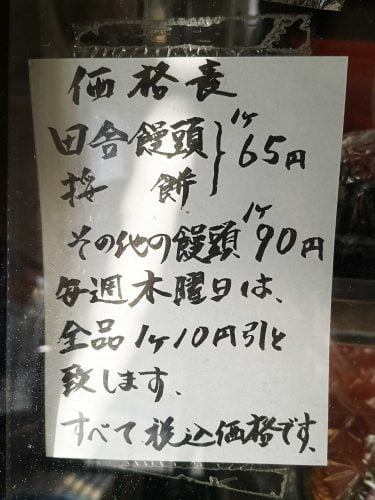 価格表
田舎饅頭 } 1ヶ65円
桜餅
その他の饅頭 1ヶ90円
毎週木曜日は、
全品1ヶ10円引と
致します、
すべて税込価格です、